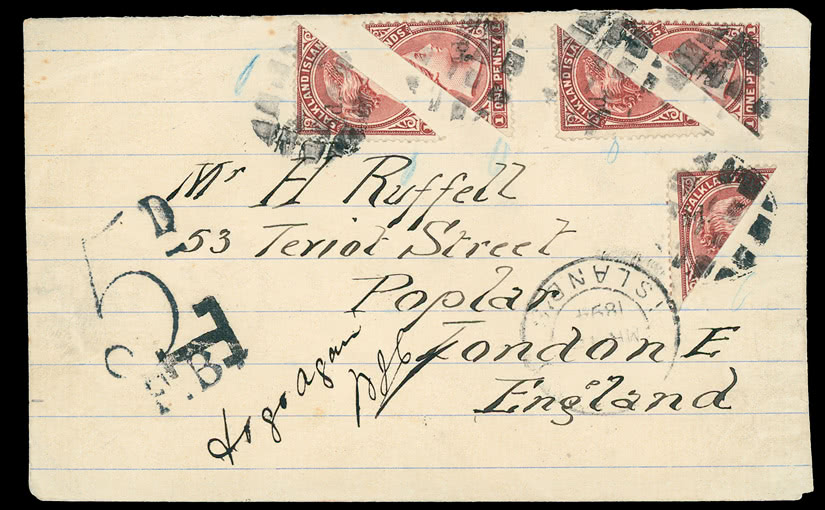 FALKLAND ISLAN
NDS
ONE PENNY
1
1
FALKLAND ISLAN
ES
ONE PEN
1
1
FALKL
Mr H Ruffell
53 Teriot Street
Poplar
London E
England
5D
T
F.B.
ISLAND
189